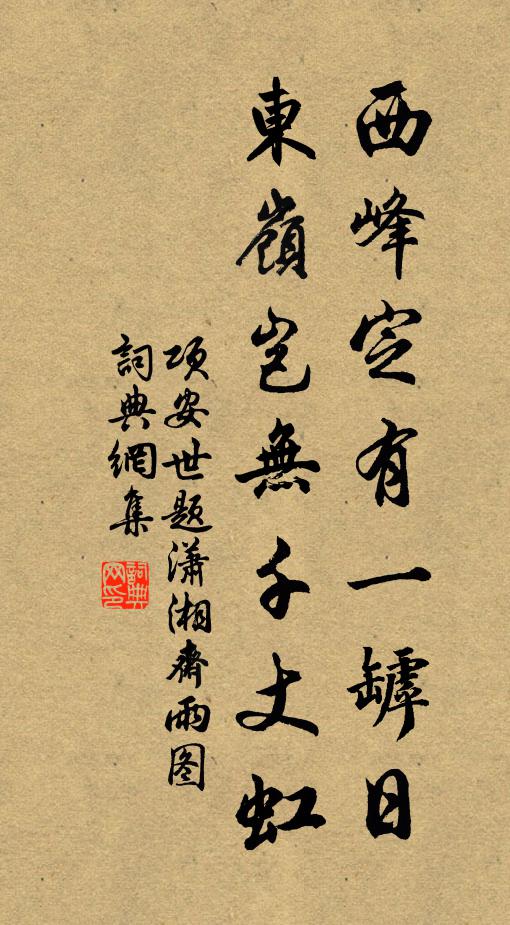 西峰定有一罅日
東嶺豈無千丈虹
项安世题瀟湘齋雨图
詞典網集
詞典
网印